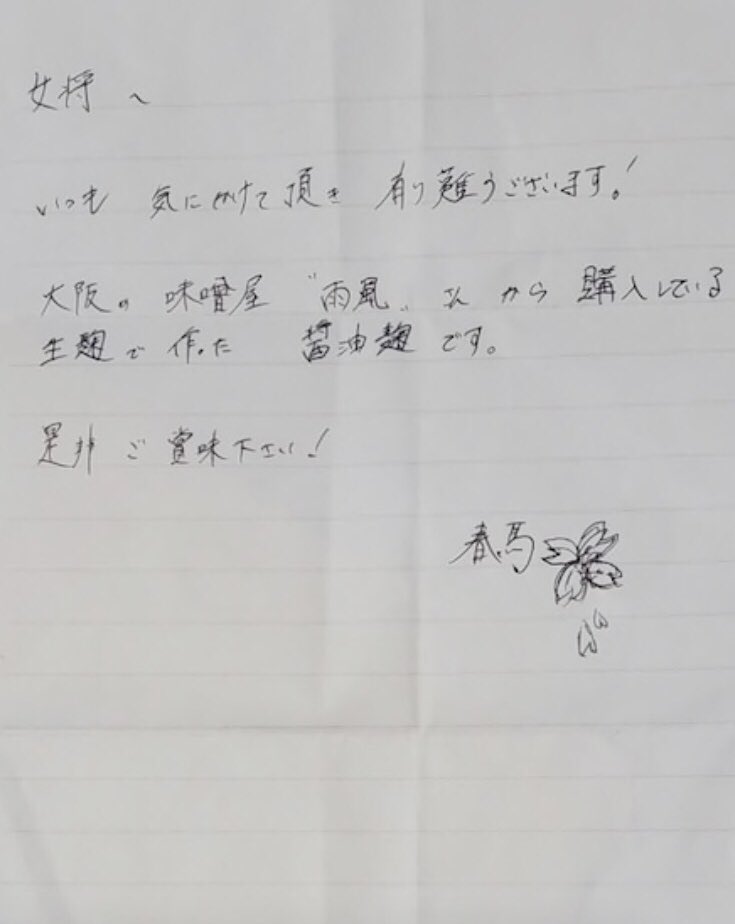 女将へ
いつも 気にかけて頂き 有り難うございます!
大阪の 味噌屋 “雨風„ さん から 購入している
生麹で 作った 醤油麹 です。
是非 ご 賞味下さい!
春馬